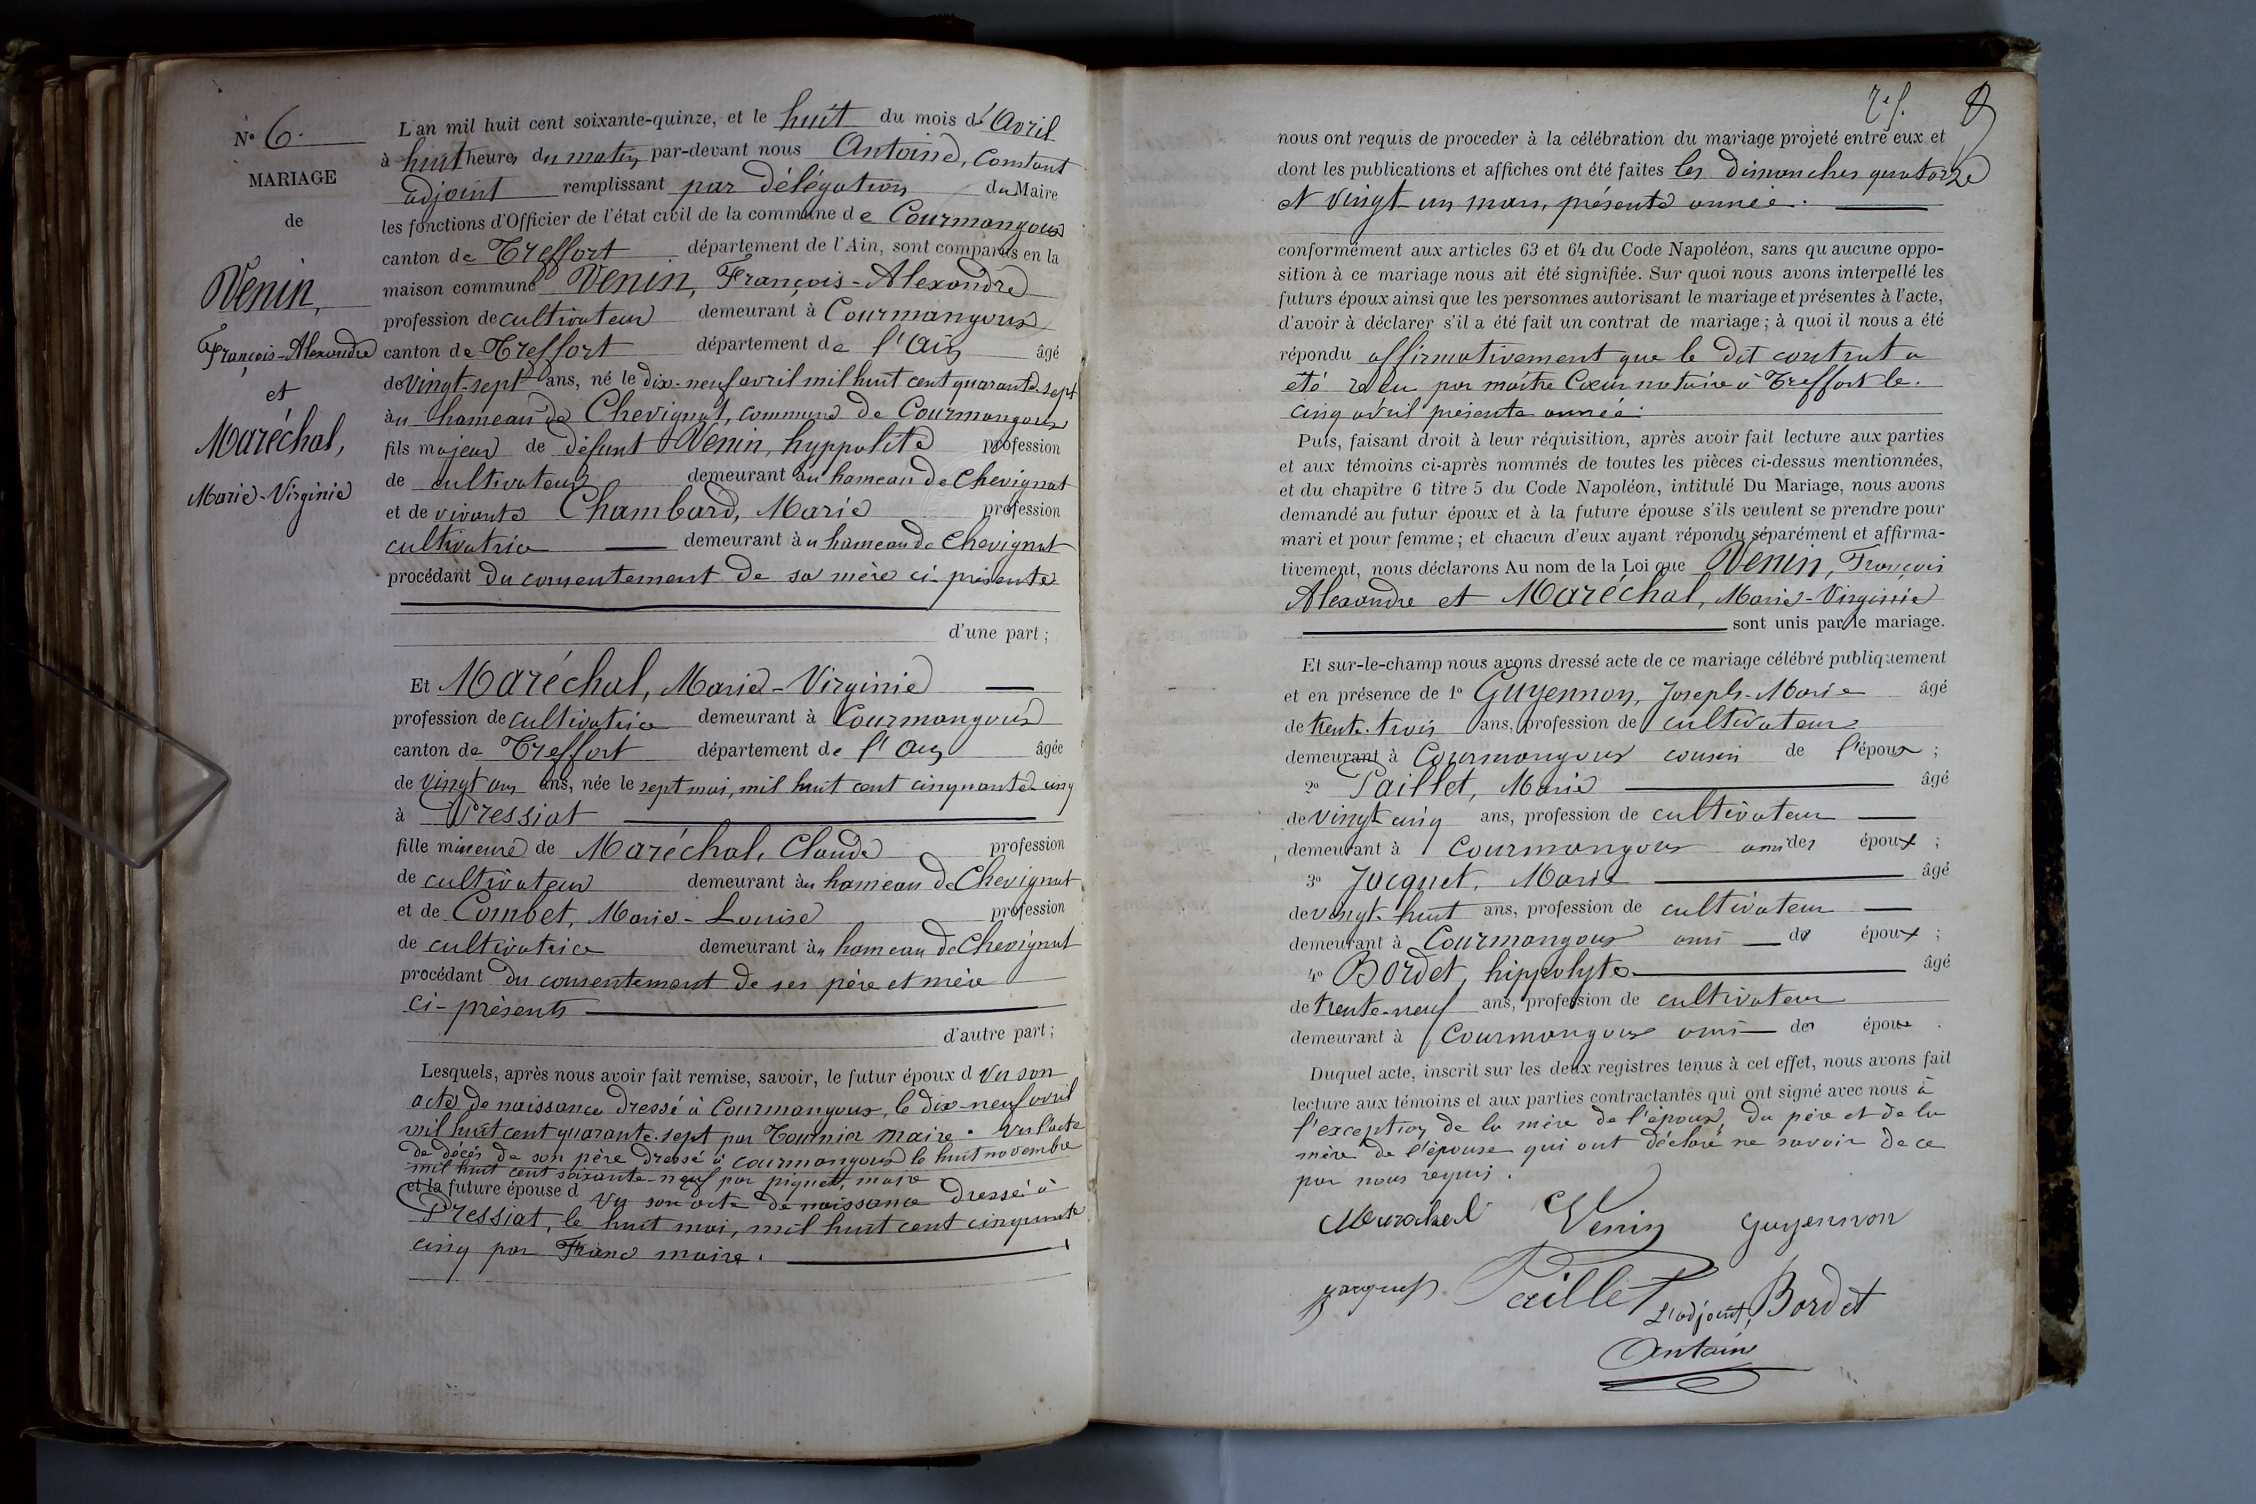 N° 6.
MARIAGE
de
Venin,
François-Alexandre
et
Maréchal,
Marie-Virginie
L'an mil huit cent soixante-quinze, et le huit du mois d'Avril
à huit heures du matin par-devant nous Antoine, Constant
adjoint remplissant par délégation du Maire
les fonctions d'Officier de l'état civil de la commune de Courmangoux
canton de Treffort département de l'Ain, sont comparus en la
maison commune Venin, François-Alexandre
profession de cultivateur demeurant à Courmangoux
canton de Treffort département de l'Ain âgé
de vingt-sept ans, né le dix-neuf avril mil huit cent quarante-sept
au hameau de Chevignat, commune de Courmangoux
fils majeur de défunt Venin, hyppolite profession
de cultivateur demeurant au hameau de Chevignat
et de vivante Chambard, Marie profession
cultivatrice demeurant au hameau de Chevignat
procédant du consentement de sa mère ci-présente
d'une part ;
Et Maréchal, Marie-Virginie
profession de cultivatrice demeurant à Courmangoux
canton de Treffort département de l'Ain âgée
de vingt ans ans, née le sept mai, mil huit cent cinquante-cinq
à Pressiat
fille mineure de Maréchal, Claude profession
de cultivateur demeurant au hameau de Chevignat
et de Combet, Marie-Louise profession
de cultivatrice demeurant au hameau de Chevignat
procédant du consentement de ses père et mère
ci-présents
d'autre part ;
Lesquels, après nous avoir fait remise, savoir, le futur époux d Vu son
acte de naissance dressé à Courmangoux, le dix-neuf avril
mil huit cent quarante-sept par Tournier maire. Vu l'acte
de décès de son père dressé à Courmangoux le huit novembre
mil huit cent soixante-neuf par piquet, maire
et la future épouse d Vu son acte de naissance dressé à
Pressiat, le huit mai, mil huit cent cinquante
cinq par Franc maire.
8
nous ont requis de proceder à la célébration du mariage projeté entre eux et
dont les publications et affiches ont été faites les dimanches quatorze
et vingt-un mars, présente année.
conformément aux articles 63 et 64 du Code Napoléon, sans qu'aucune oppo-
sition à ce mariage nous ait été signifiée. Sur quoi nous avons interpellé les
futurs époux ainsi que les personnes autorisant le mariage et présentes à l'acte,
d'avoir à déclarer s'il a été fait un contrat de mariage ; à quoi il nous a été
répondu affirmativement que le dit contrat a
été reçu par maître Cœur notaire à Treffort le
cinq avril présente année.
Puis, faisant droit à leur réquisition, après avoir fait lecture aux parties
et aux témoins ci-après nommés de toutes les pièces ci-dessus mentionnées,
et du chapitre 6 titre 5 du Code Napoléon, intitulé Du Mariage, nous avons
demandé au futur époux et à la future épouse s'ils veulent se prendre pour
mari et pour femme ; et chacun d'eux ayant répondu séparément et affirma-
tivement, nous déclarons Au nom de la Loi que Venin, François
Alexandre et Maréchal, Marie-Virginie
sont unis par le mariage.
Et sur-le-champ nous avons dressé acte de ce mariage célébré publiquement
et en présence de 1° Guyennon, Joseph-Marie âgé
de trente-trois ans, profession de cultivateur
demeurant à Courmangoux cousin de l'époux ;
2° Paillet, Marie âgé
de vingt cinq ans, profession de cultivateur
demeurant à Courmangoux ami des époux ;
3° Jacquet, Marie âgé
de vingt-huit ans, profession de cultivateur
demeurant à Courmangoux ami des époux ;
4° Bordet, hippolyte âgé
de trente-neuf ans, profession de cultivateur
demeurant à Courmangoux ami des époux.
Duquel acte, inscrit sur les deux registres tenus à cet effet, nous avons fait
lecture aux témoins et aux parties contractantes qui ont signé avec nous à
l'exception de la mère de l'époux, du père et de la
mère de l'épouse qui ont déclaré ne savoir de ce
par nous requis.
Marechal Venin Guyennon
Jacquet Paillet L'adjoint, Bordet
Antoine